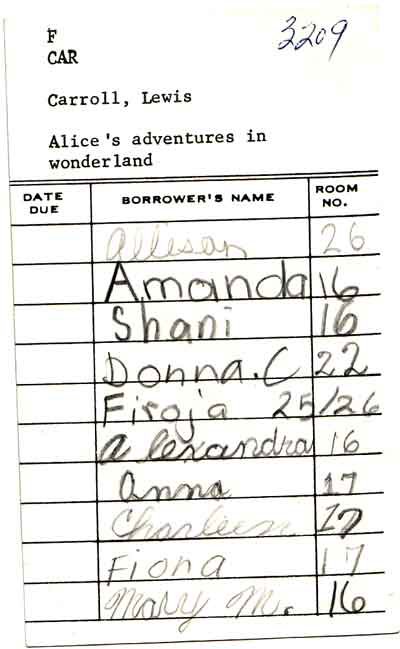 F 3209
CAR
Carroll, Lewis
Alice's adventures in
wonderland
DATE DUE BORROWER'S NAME ROOM NO.
Allison 26
Amanda 16
Shani 16
Donna. C 22
Firoja 25/26
Alexandra 16
Anna 17
Charleen 17
Fiona 17
Mary M. 16